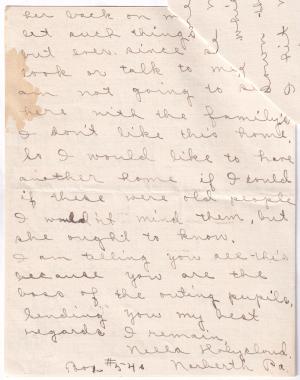 her back on m
let such things
but ever since I
look or talk to me
am not going to s
here with the family.
I don't like this home,
so I would like to have
another home if I could
if these were old people
I would n't mind them, but
she ought to know.
I am telling you all this
because you are the
boss of the outing pupils.
Sending you my best
regards I remain.
Nella
Box #546 Narberth Pa.